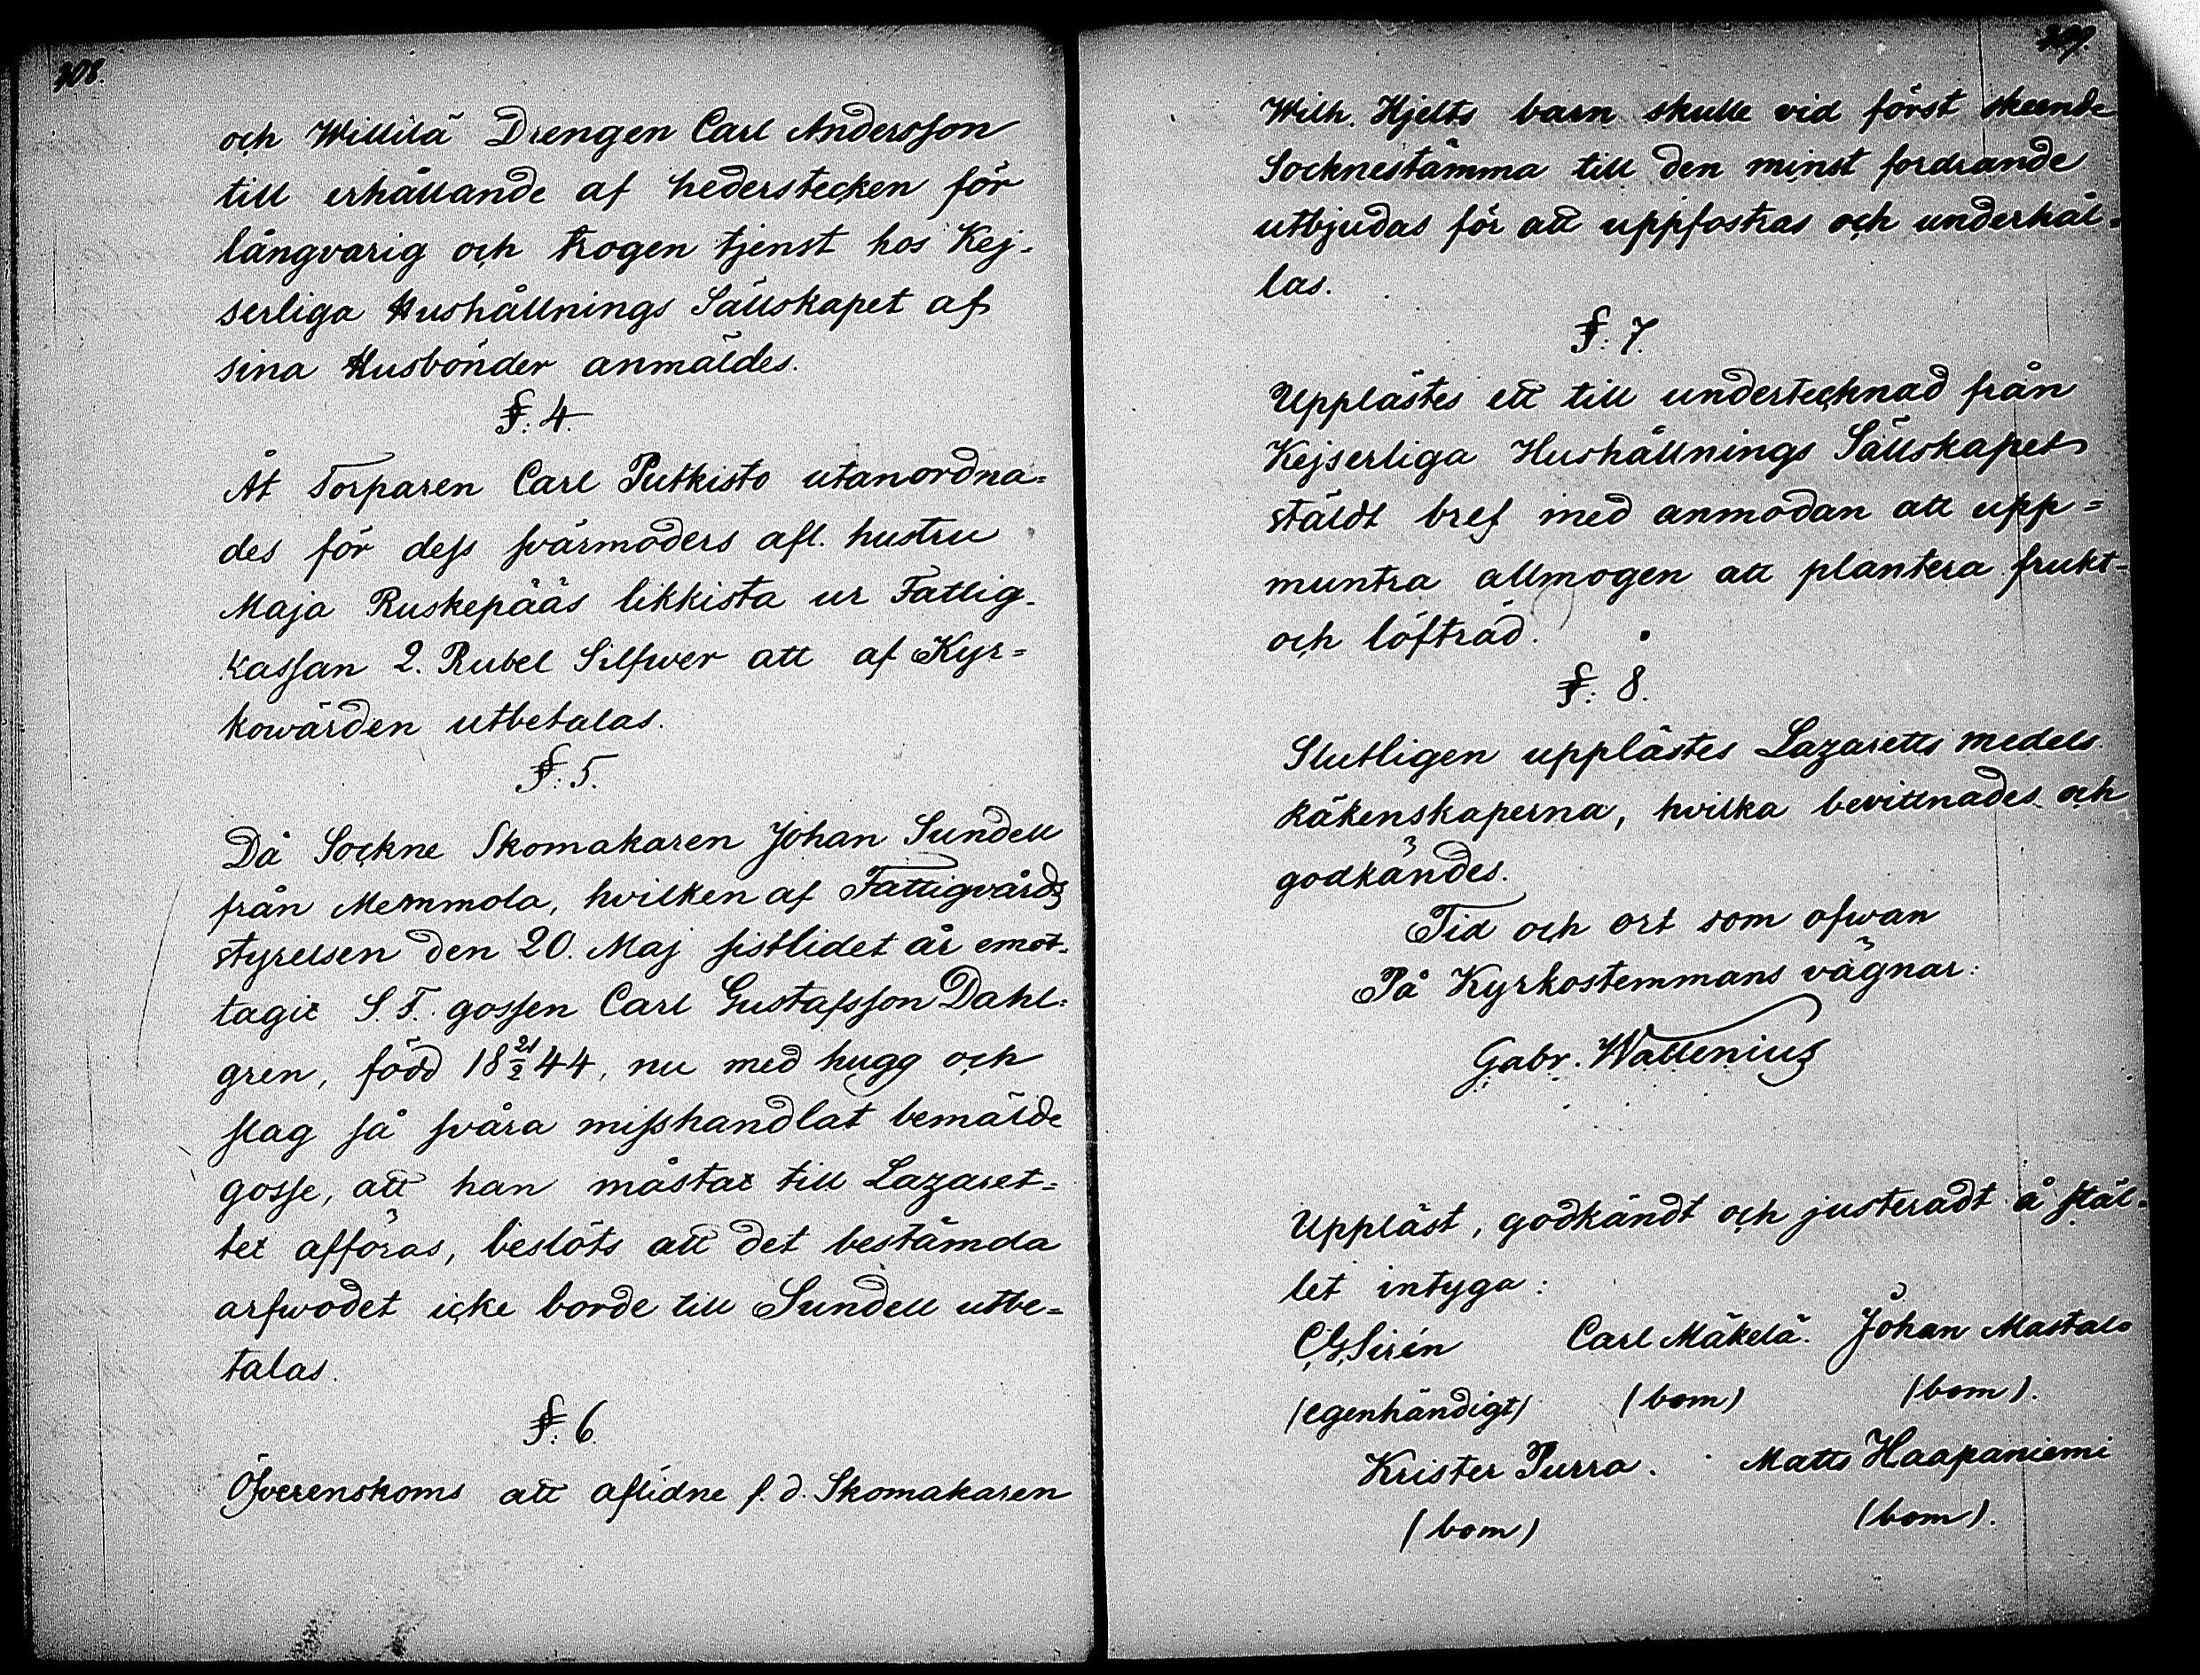 308.
och Willilä Drengen Carl Andersson
till erhållande af hederstecken för
långvarig och trogen tjenst hos Kej-
serliga Hushållnings Sällskapet af
sina Husbönder anmäldes.
§. 4.
Åt Torparen Carl Putkisto utanordna=
des för dess svärmoders afl. hustru
Maja Ruskepääs likkista ur Fattig-
kassan 2. Rubel Silfwer att af Kyr=
kowärden utbetalas.
§. 5.
Då Sockne Skomakaren Johan Sundell
från Memmola, hvilken af Fattigvårds
styrelsen den 20. Maj sistlidet år emot-
tagit S. F. gossen Carl Gustafsson Dahl=
gren, född 18 21/2 44, nu med hugg och
slag så svåra misshandlat bemälde
gosse, att han måstat till Lazaret=
tet afföras, beslöts att det bestämda
arfwodet icke borde till Sundell utbe=
talas.
§. 6.
Öfverenskoms att aflidne f. d. Skomakaren
309.
Wilh. Hjelts barn skulle vid först skeende
Socknestämma till den minst fordrande
utbjudas för att uppfostras och underhål-
las.
§. 7.
Upplästes ett till undertecknad från
Kejserliga Hushållnings Sällskapet
stäldt bref med anmodan att upp=
muntra allmogen att plantera frukt-
och löfträd.
§. 8.
Slutligen upplästes Lazaretts medels
Räkenskaperna, hvilka bevittnades och
godkändes.
Tid och ort som ofwan
På Kyrkostemmans vägnar:
Gabr. Wallenius
Uppläst, godkändt och justeradt å stäl-
let intyga:
CGSirén Carl Mäkelä. Johan Mastala
(egenhändigt) (bom) (bom).
Krister Purra. Matts Haapaniemi
(bom) (bom).